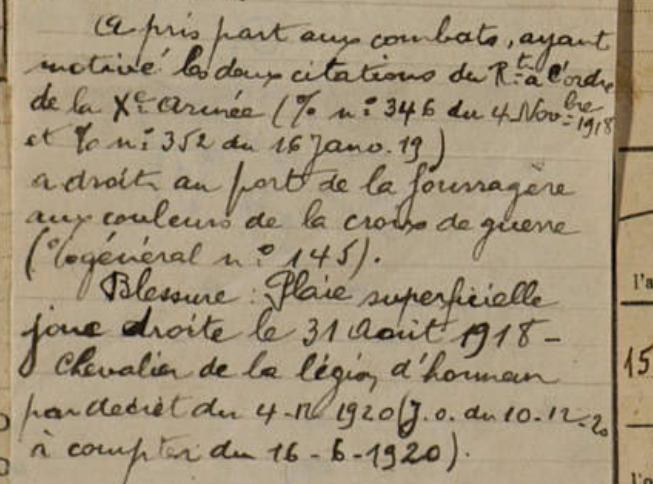 A pris part aux combats, ayant
motivé les deux citations du R.t à l'ordre
de la Xe Armée (% n° 346 du 4 Novbre 1918
et % n° 352 du 16 Janv. 19)
a droit au port de la fourragère
aux couleurs de la croix de guerre
(% général n° 145).
Blessure : Plaie superficielle
joue droite le 31 Août 1918 -
Chevalier de la légion d'honneur
par decrèt du 4-12 1920 (J.o. du 10-12-20
à compter du 16-6-1920).
l'a
15
l'o